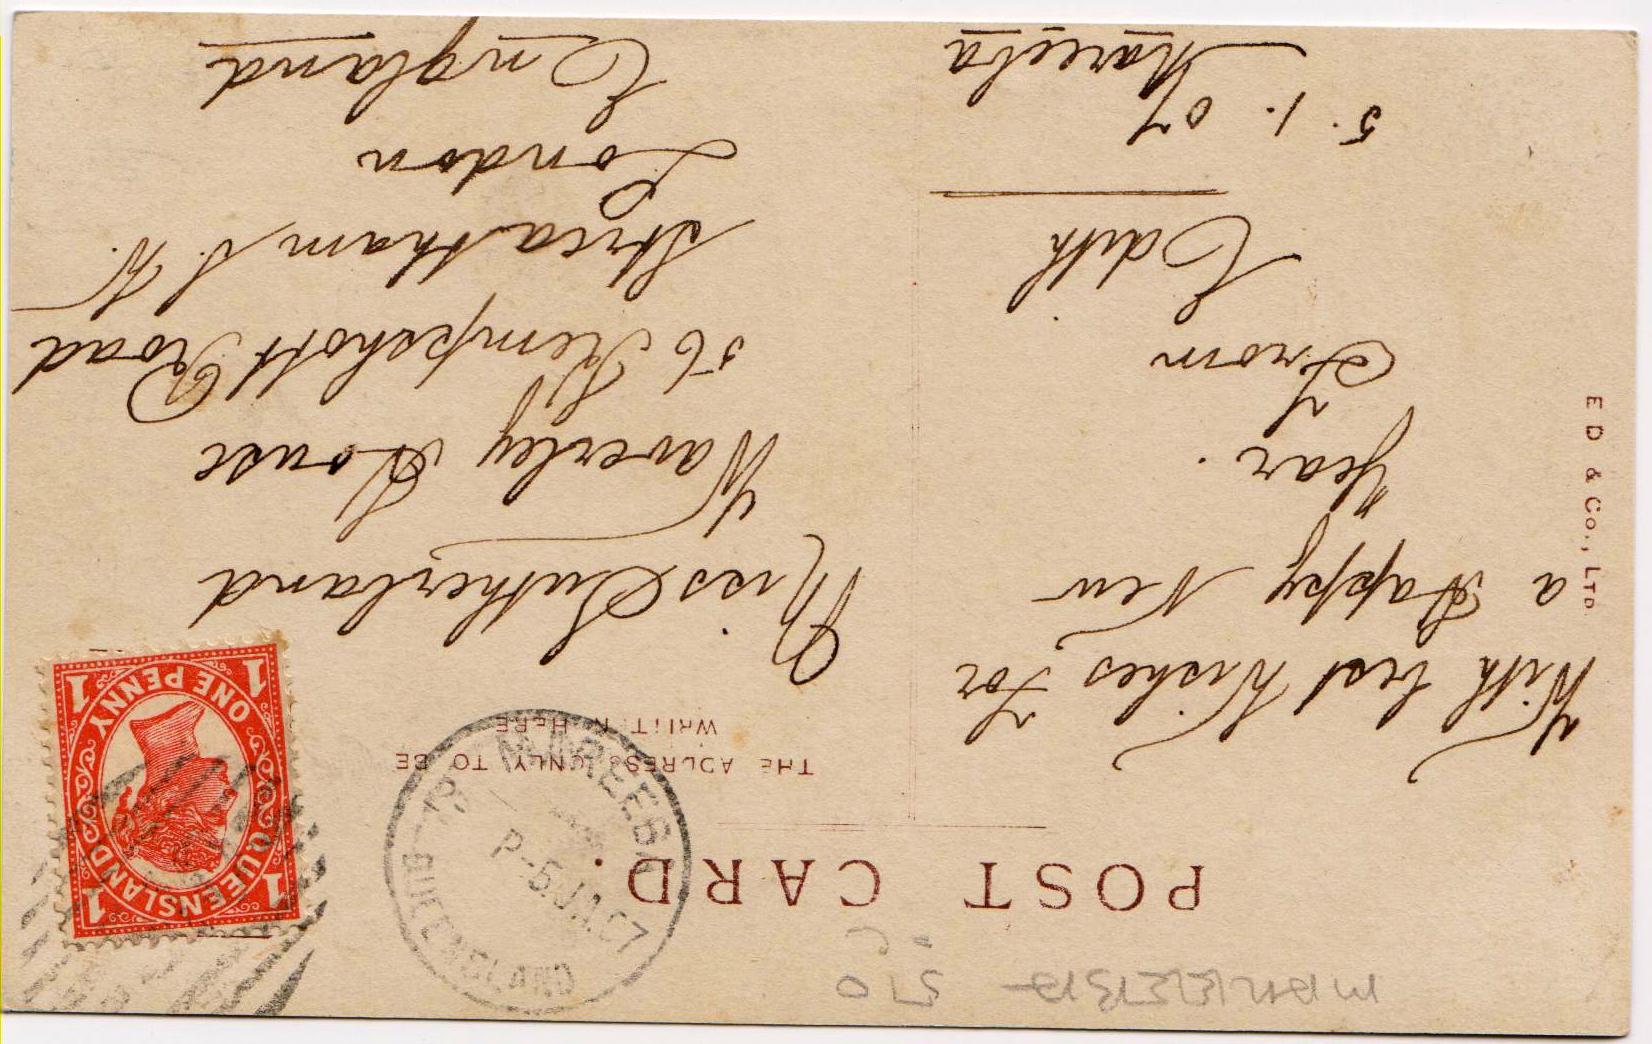 MAREEBA
POST CARD.
MAREEBA
P-5JA.07
QUEENSLAND
1 1
QUEENSLAND
ONE PENNY
1 1
THE ADDRESS ONLY TO BE
WRITTEN HERE
With best Wishes for
a Happy New
Year.
From
Edith
5.1.07
Mareeba
Miss Sutherland
Waverley House
56 Kempshott Road
Streatham S.W.
London
England
E D & Co., LTD.